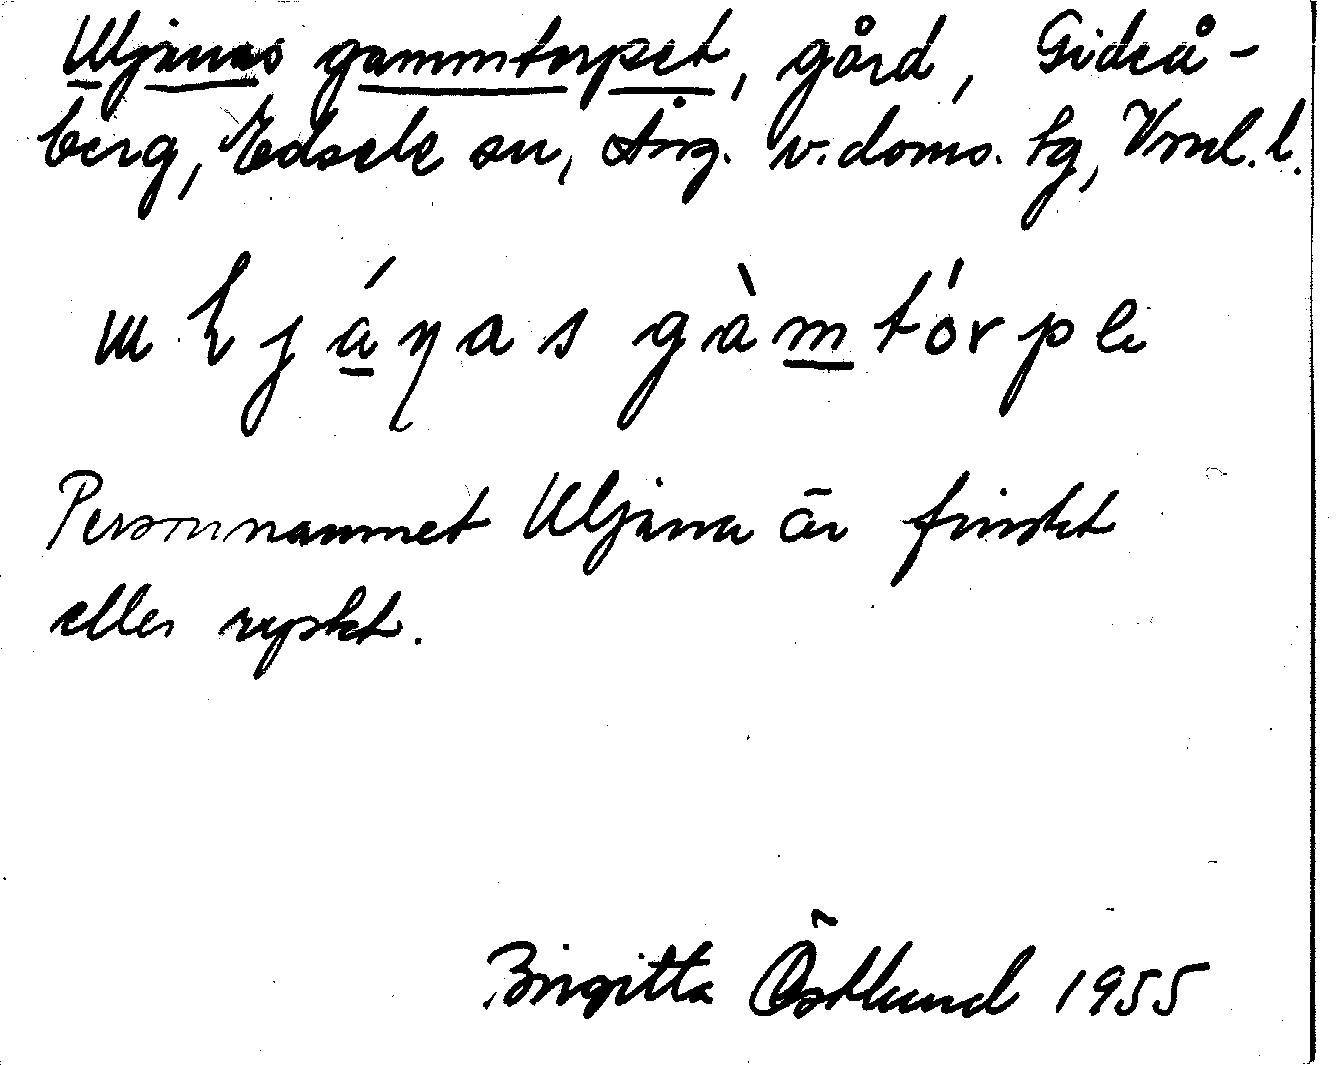 Uljanas gammtorpet, gård, Gideå-
berg, Edsele sn, Ång. v. doms. tg, Vrnl. l.
gàmtórpe
Personnamnet Uljana är finskt
eller ryskt.
Birgitta Östlund 1955